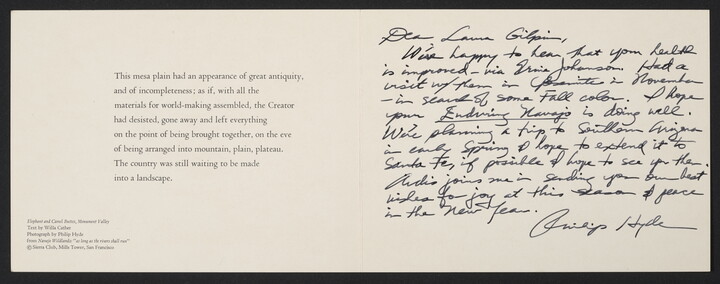 This mesa plain had an appearance of great antiquity,
and of incompleteness; as if, with all the
materials for world-making assembled, the Creator
had desisted, gone away and left everything
on the point of being brought together, on the eve
of being arranged into mountain, plain, plateau.
The country was still waiting to be made
into a landscape.
Elephant and Camel Buttes, Monument Valley
Text by Willa Cather
Photograph by Philip Hyde
From Navajo Wildlands: "as long as the rivers shall run"
© Sierra Club, Mills Tower, San Francisco
Dear Laura Gilpin,
We're happy to hear that your health
is improved – via Ernie Johanson. Had a
visit w/them in Yosemite in November
– in search of some Fall color. I hope
your Enduring Navajo is doing well.
We're planning a trip to Southern Arizona
in early Spring & hope to extend it to
Santa Fe, if possible & hope to see you then.
Ardis joins me in sending you our best
wishes for joy at this season & peace
in the New Year.
Philip Hyde